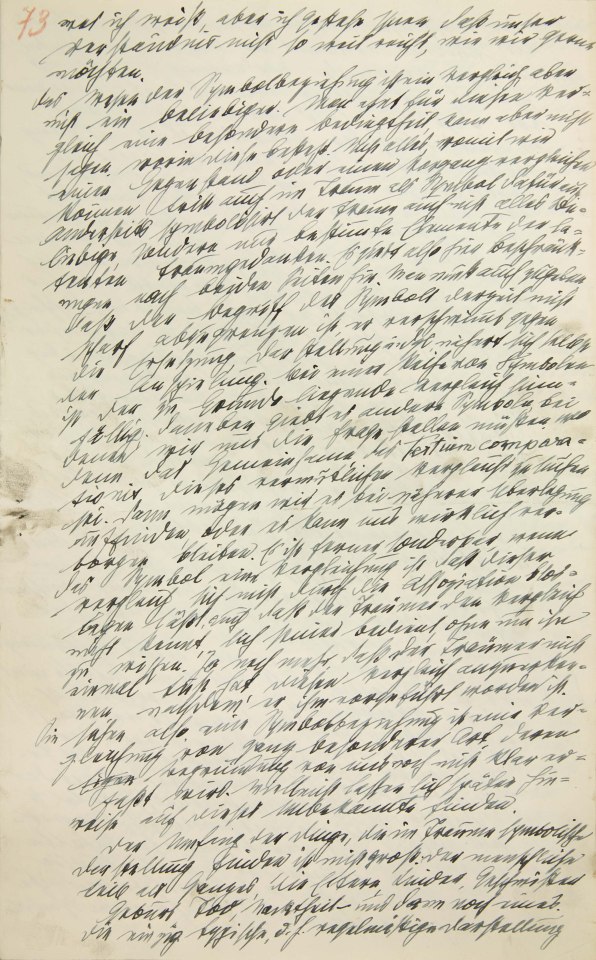 73 was ich weiß, aber ich gestehe Ihnen daß unser
Verständnis nicht so weit reicht, wie wir gerne
möchten.
Das Wesen der Symbolbeziehung ist ein Vergleich, aber
nicht ein beliebiger. Man ahnt für diesen Ver-
gleich eine besondere Bedingtheit kann aber nicht
sagen, worin diese besteht. Nicht alles, womit wir
einen Gegenstand oder einen Vorgang vergleichen
können tritt auch im Traume als Symbol dafür auf.
Anderseits symbolisirt der Traum auch nicht alles be-
liebige sondern nur bestimte Elemente der la-
tenten Traumgedanken. Es giebt also hier Beschränk-
ungen nach beiden Seiten hin. Man muß auch zugeben
daß der Begriff des Symbols derzeit nicht
scharf abzugrenzen ist er verschwimmt gegen
die Ersetzung Darstellung udgl. nähert sich selbst
der Anspielung. Bei einer Reihe von Symbolen
ist der zu Grunde liegende Vergleich sinn-
fällig. Daneben giebt es andere Symbole bei
denen wir uns die Frage stellen müssen wo
denn das Gemeinsame, das Tertium compara-
tionis dieses vermutlichen Vergleichs zu suchen
sei. Dann mögen wir es bei näherer Überlegung
auffinden oder es kann uns wirklich ver-
borgen bleiben. Es ist ferner sonderbar wenn
das Symbol eine Vergleichung ist daß dieser
Vergleich sich nicht durch die Association bloß-
legen läßt, auch daß der Träumer den Vergleich
nicht kennt, sich seiner bedient ohne um ihn
zu wissen. Ja noch mehr, daß der Träumer nicht
einmal Lust hat diesen Vergleich anzuerken-
nen nachdem er ihm vorgeführt worden ist.
Sie sehen also eine Symbolbeziehung ist eine Ver-
gleichung von ganz besonderer Art deren
Begründung von uns noch nicht klar er-
faßt wird. Vielleicht lassen sich später Hin-
weise auf dieses Unbekannte finden.
Der Umfang der Dinge, die im Traume symbolische
Darstellung finden ist nicht groß. Der menschliche
Leib als Ganzes, die Eltern Kinder, Geschwister
Geburt Tod, Nacktheit – und dann noch eines.
Die einzig typische, d. h. regelmäßige Darstellung